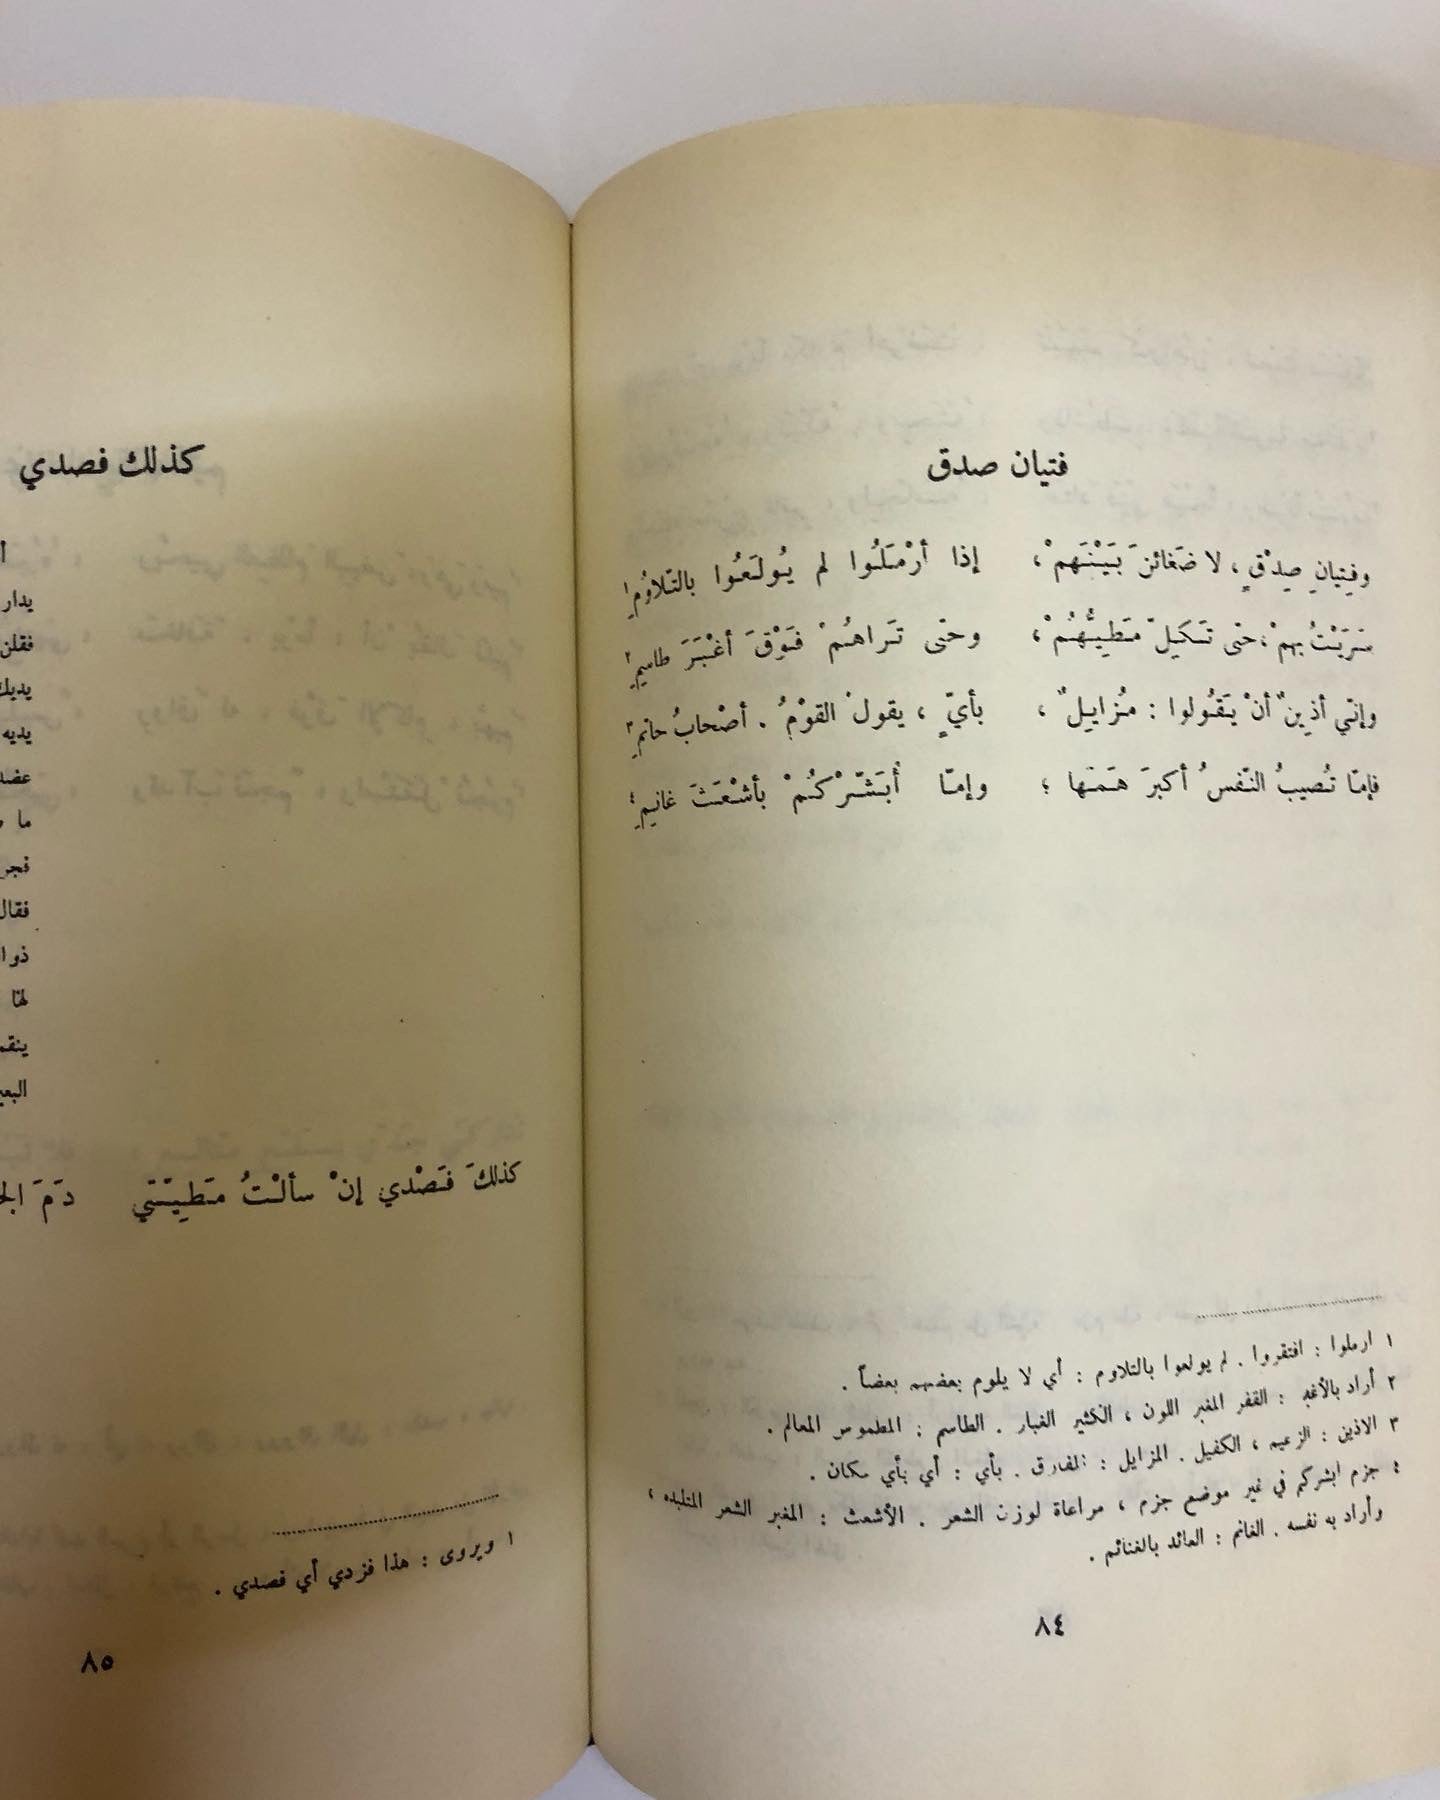 فتيان صدق
وفِتيانِ صِدْقٍ ، لا ضَغائنَ بَيْنَهمْ ، إذا أرْمَلُوا لم يُولَعُوا بالتّلاوُمِ ١
سَرَيْتُ بهمْ ، حتى تَكَيلّ مَطِيُّهُمْ ، وحتى تَراهُمْ فَوْقَ أغْبَرَ طاسِمِ ٢
وإني أذِينٌ أنْ يَقُولوا : مُزايلٌ ، بأيٍّ ، يقولُ القوْمُ . أصْحابُ حاتمِ ٣
فإمّا تُصيبُ النّفسُ أكبرَ هَمّها ؛ وإمّا أُبَشّرْكُمْ بأشْعَثَ غانِمِ ٤
١ ارملوا : افتقروا . لم يولعوا بالتلاوم : أي لا يلوم بعضهم بعضاً .
٢ أراد بالأغبر : القفر المغبر اللون ، الكثير الغبار . الطاسم : المطموس المعالم .
٣ الاذين : الزعيم ، الكفيل . المزايل : المفارق . بأي : أي بأي مكان .
٤ جزم ابشركم في غير موضع جزم ، مراعاة لوزن الشعر . الأشعث : المغبر الشعر المتلبده ،
وأراد به نفسه . الغانم : العائد بالغنائم .
٨٤
كذلك فصدي
يدار
فقلن
يديك
يديه
عضد
ما
فجر
فقال
ذوا
لها
ينقم
البعي
كذلكَ فَصْدي إنْ سألْتُ مَطِيّتَي دَمَ
١ ويروى : هذا فزدي أي فصدي .
٨٥